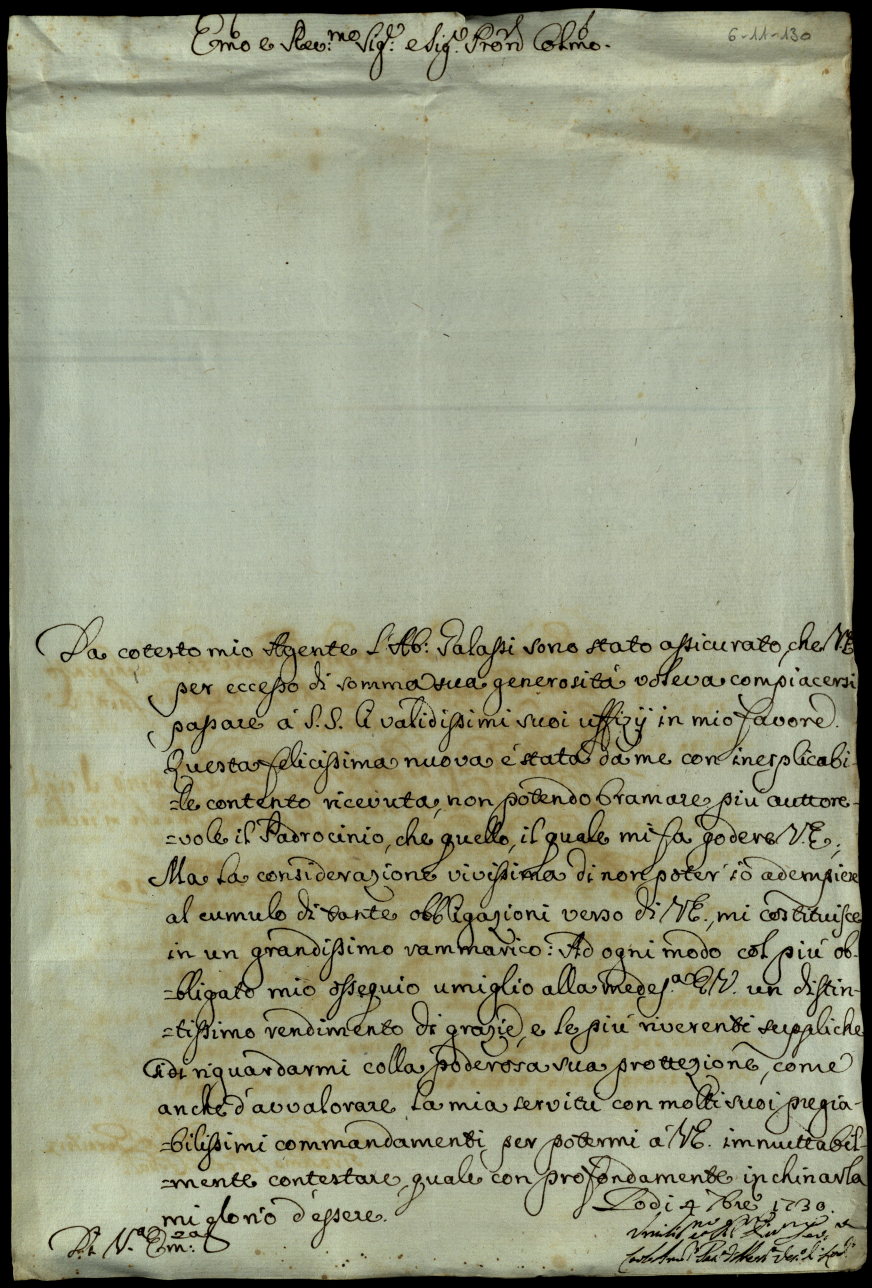 Emo e Rev.mo Sig.r e Sig.r Pron Colmo.
6-11-130
Da cotesto mio Agente l'Ab: Galassi sono stato assicurato, che V.E
per eccesso di somma sua generosità voleva compiacersi
passare à S.S. i validissimi suoi uffizij in mio favore.
Questa felicissima nuova è stata da me con inesplicabi-
=le contento ricevuta, non potendo bramare più auttore-
=vole il Padrocinio, che quello, il quale mi fa godere V.E.;
Ma la considerazione vivissima di non poter io adempiere
al cumulo di tante obbligazioni verso di V.E., mi costituisce
in un grandissimo rammarico: Ad ogni modo col più ob-
=bligato mio ossequio umiglio alla medes.a E.V. un distin-
=tissimo rendimento di grazie, e le più riverenti suppliche
di riguardarmi colla poderosa sua prottezione, come
anche d'avvalorare la mia servitù con molti suoi pregia-
=bilissimi commandamenti, per potermi à V.E. immuttabil-
=mente contestare, quale con profondamente inchinarla
mi glorio d'essere.
Lodi 4 7bre 1730.
D. V.a Em.za